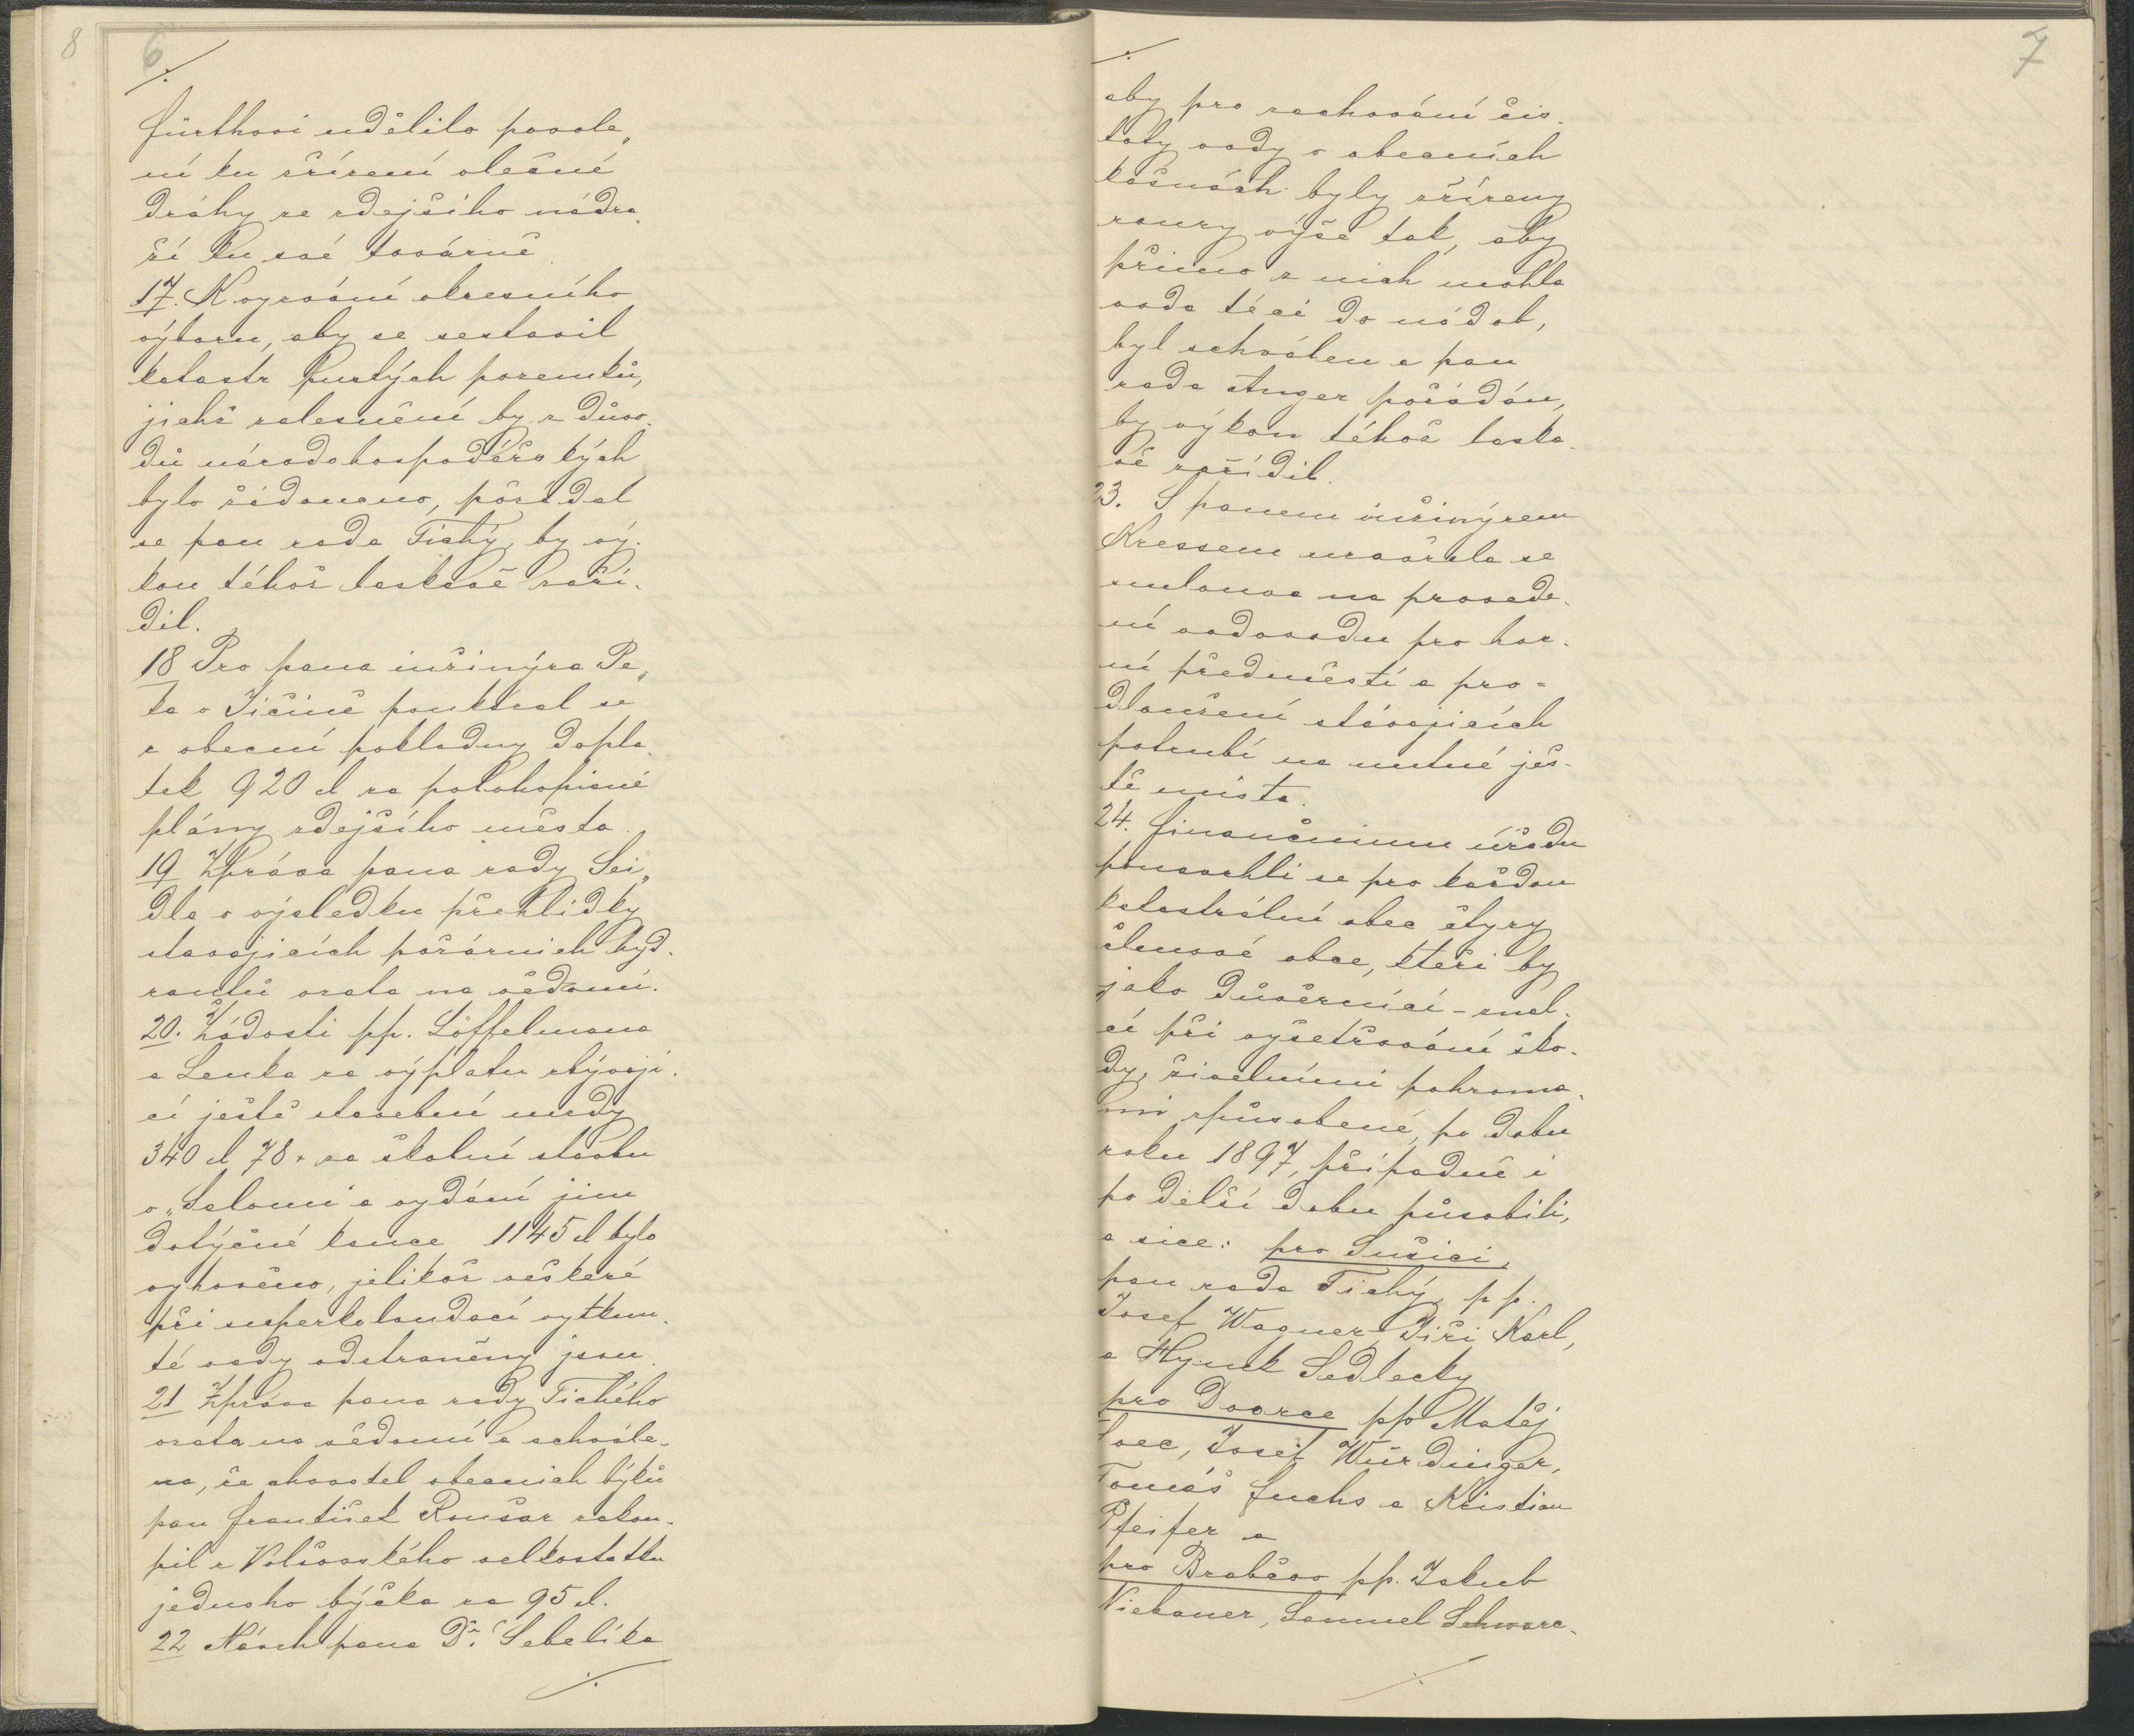 8
6
./.
Fürthovi udělilo povole„
ní ku zřízení vlečné
dráhy ze zdejšího nádra-
ží ku své továrně.
17. K vyzvání okresního
výboru, aby se sestavil
katastr pustých pozemků,
jichž zalesnění by z důvo-
dů národohospodářských
bylo žádoucno, požádal
se pan rada Tichý, by vý-
kon téhož laskavě zaří-
dil.
18 Pro pana inžinýra Pe„
ka v Jičíně poukázal se
z obecní pokladny dopla-
tek 920 zl za polohopisné
plány zdejšího města.
19 Zpráva pana rady Sei„
dla o výsledku přehlídky
stavajících požárních hyd-
rantů vzata na vědomí.
20. Žádosti pp. Löffelmana
a Lenka za výplatu zbývají-
cí ještě stavební mzdy
340 zl 78 kr za školní stavbu
v „Seloui“ a vydání jim
dotýčné kauce 1145 zl bylo
vyhověno, jelikož veškeré
při superkolaudaci vytknu-
té vady odstraněny jsou.
21 Zpráva pana rady Tichého
vzata na vědomí a schvále-
no, že chovatel obecních býků
pan František Roušar zakou-
pil z Volšovského velkostatku
jednoho býčka za 95 zl.
22 Návrh pana Dra. Sebelíka
./.
./.
7
aby pro zachování čis-
toty vody v obecních
kašnách byly zřízeny
roury výše tak, aby
přímo z nich mohla
voda téci do nádob,
byl schválen a pan
rada Anger požádán,
by výkon téhož laska-
vě zařídil.
23. S panem inžinýrem
Kressem uzavřela se
smlouva na provede-
ní vodovodu pro hor-
ní předměstí a pro=
dloužení stávajících
potrubí na nutné ješ-
tě místa.
24. Finančnímu úřadu
pousovhli se pro každou
katastrální obec čtyry
členové obce, kteří by
jako důvěrníci – znal-
cí při vyšetřování ško-
dy, živelními pohroma-
mi způsobené, po dobu
roku 1897, případně i
po delší dobu působili,
a sice: pro Sušici,
pan rada Tichý, pp.
Josef Wagner, Jiří Karl,
a Hynek Sedlecky
pro Dvorce pp Matěj
Švec, Josef Würdinger,
Tomáš Fuchs a Kristian
Pfeifer a
pro Brabčov pp. Jakub
Niebauer, Samuel Schwarc-
./.